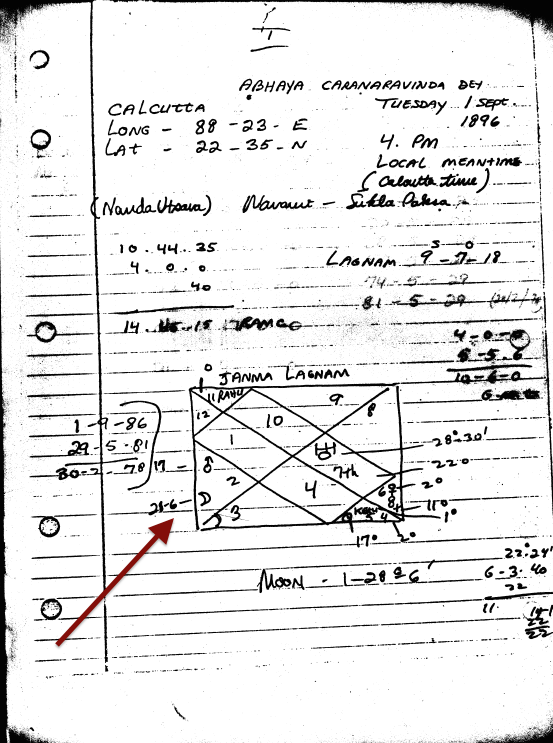 ABHAYA CARANARAVINDA DEY
CALCUTTA
TUESDAY 1 SEPT.
1896
LONG - 88 - 23 - E
LAT - 22 - 35 - N
4. PM
LOCAL MEANTIME
(Calcutta time)
(Nanda Utsava) - Sukla Paksa
10. 44. 35
4. 0. 0
40
S O
LAGNAM 9 - 7 - 18
74 - 5 - 29
81 - 5 - 29
14. 15 RAMC
4 - 0
5 - 5. 6
10 - 6 - 0
JANMA LAGNAM
11 RAHU
12
10
9
8
1
7th
2
4
3
1 - 9 - 86
29 - 5 - 81
30 - 2 - 78
17 -
28-6 -
28°-30'
22°
2°
11°
1°
17°
2°
MOON - 1 - 28 - 6'
22°.24'
6 - 3. 40
22
11
22
22